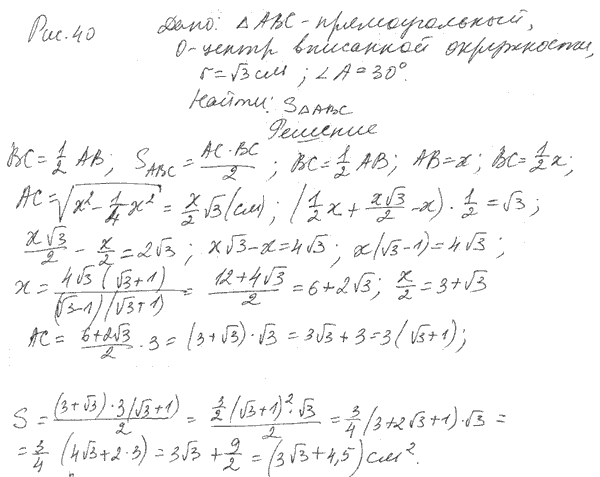 Рис.40 Дано: △ABC - прямоугольный,
O - центр вписанной окружности,
r = √3 см; ∠A = 30°.
Найти: S△ABC
Решение
BC = 1/2 AB; S_ABC = AC·BC/2; BC = 1/2 AB; AB = x; BC = 1/2 x;
AC = √(x² - 1/4 x²) = x/2 √3 (см); (1/2 x + x√3/2 - x) · 1/2 = √3;
x√3/2 - x/2 = 2√3; x√3 - x = 4√3; x(√3 - 1) = 4√3;
x = 4√3(√3 + 1)/(√3 - 1)(√3 + 1) = 12 + 4√3/2 = 6 + 2√3; x/2 = 3 + √3
AC = 6 + 2√3/2 · 3 = (3 + √3) · √3 = 3√3 + 3 = 3(√3 + 1);
S = (3 + √3) · 3(√3 + 1)/2 = 3/2 (√3 + 1)² · √3/2 = 3/4 (3 + 2√3 + 1) · √3 =
= 3/4 (4√3 + 2·3) = 3√3 + 9/2 = (3√3 + 4,5) см².